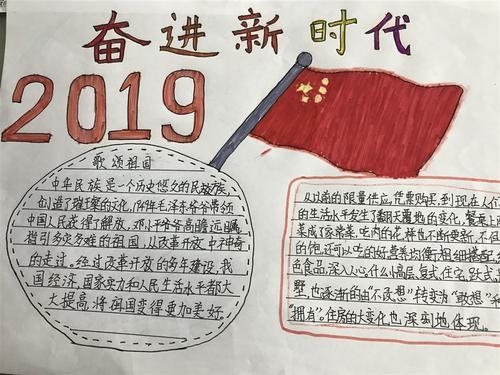 奋进新时代
2019
歌颂祖国
中华民族是一个历史悠久的民族
也创造了璀璨的文化,1949年毛泽东爷爷带领
中国人民获得了解放。邓小平爷爷高瞻远瞩
指引多灾多难的祖国,从改革开放中神奇
的走过。经过改革开放的多年建设,我
国经济,国家实力和人民生活水平都大
大提高,将祖国变得更加美好。
从以前的限量供应,凭票购买,到现在人们
的生活水平发生了翻天覆地的变化,餐桌上
菜成了家常菜,吃肉的花样也不断更新,不
的饱,还可以吃的好,营养均衡,粗细搭配,
色食品深入心什么小高层,复式住宅,跃式,
墅,也逐渐的由“不敢想”转变为“敢想”和
“拥有”。住房的大变化也深刻地体现。